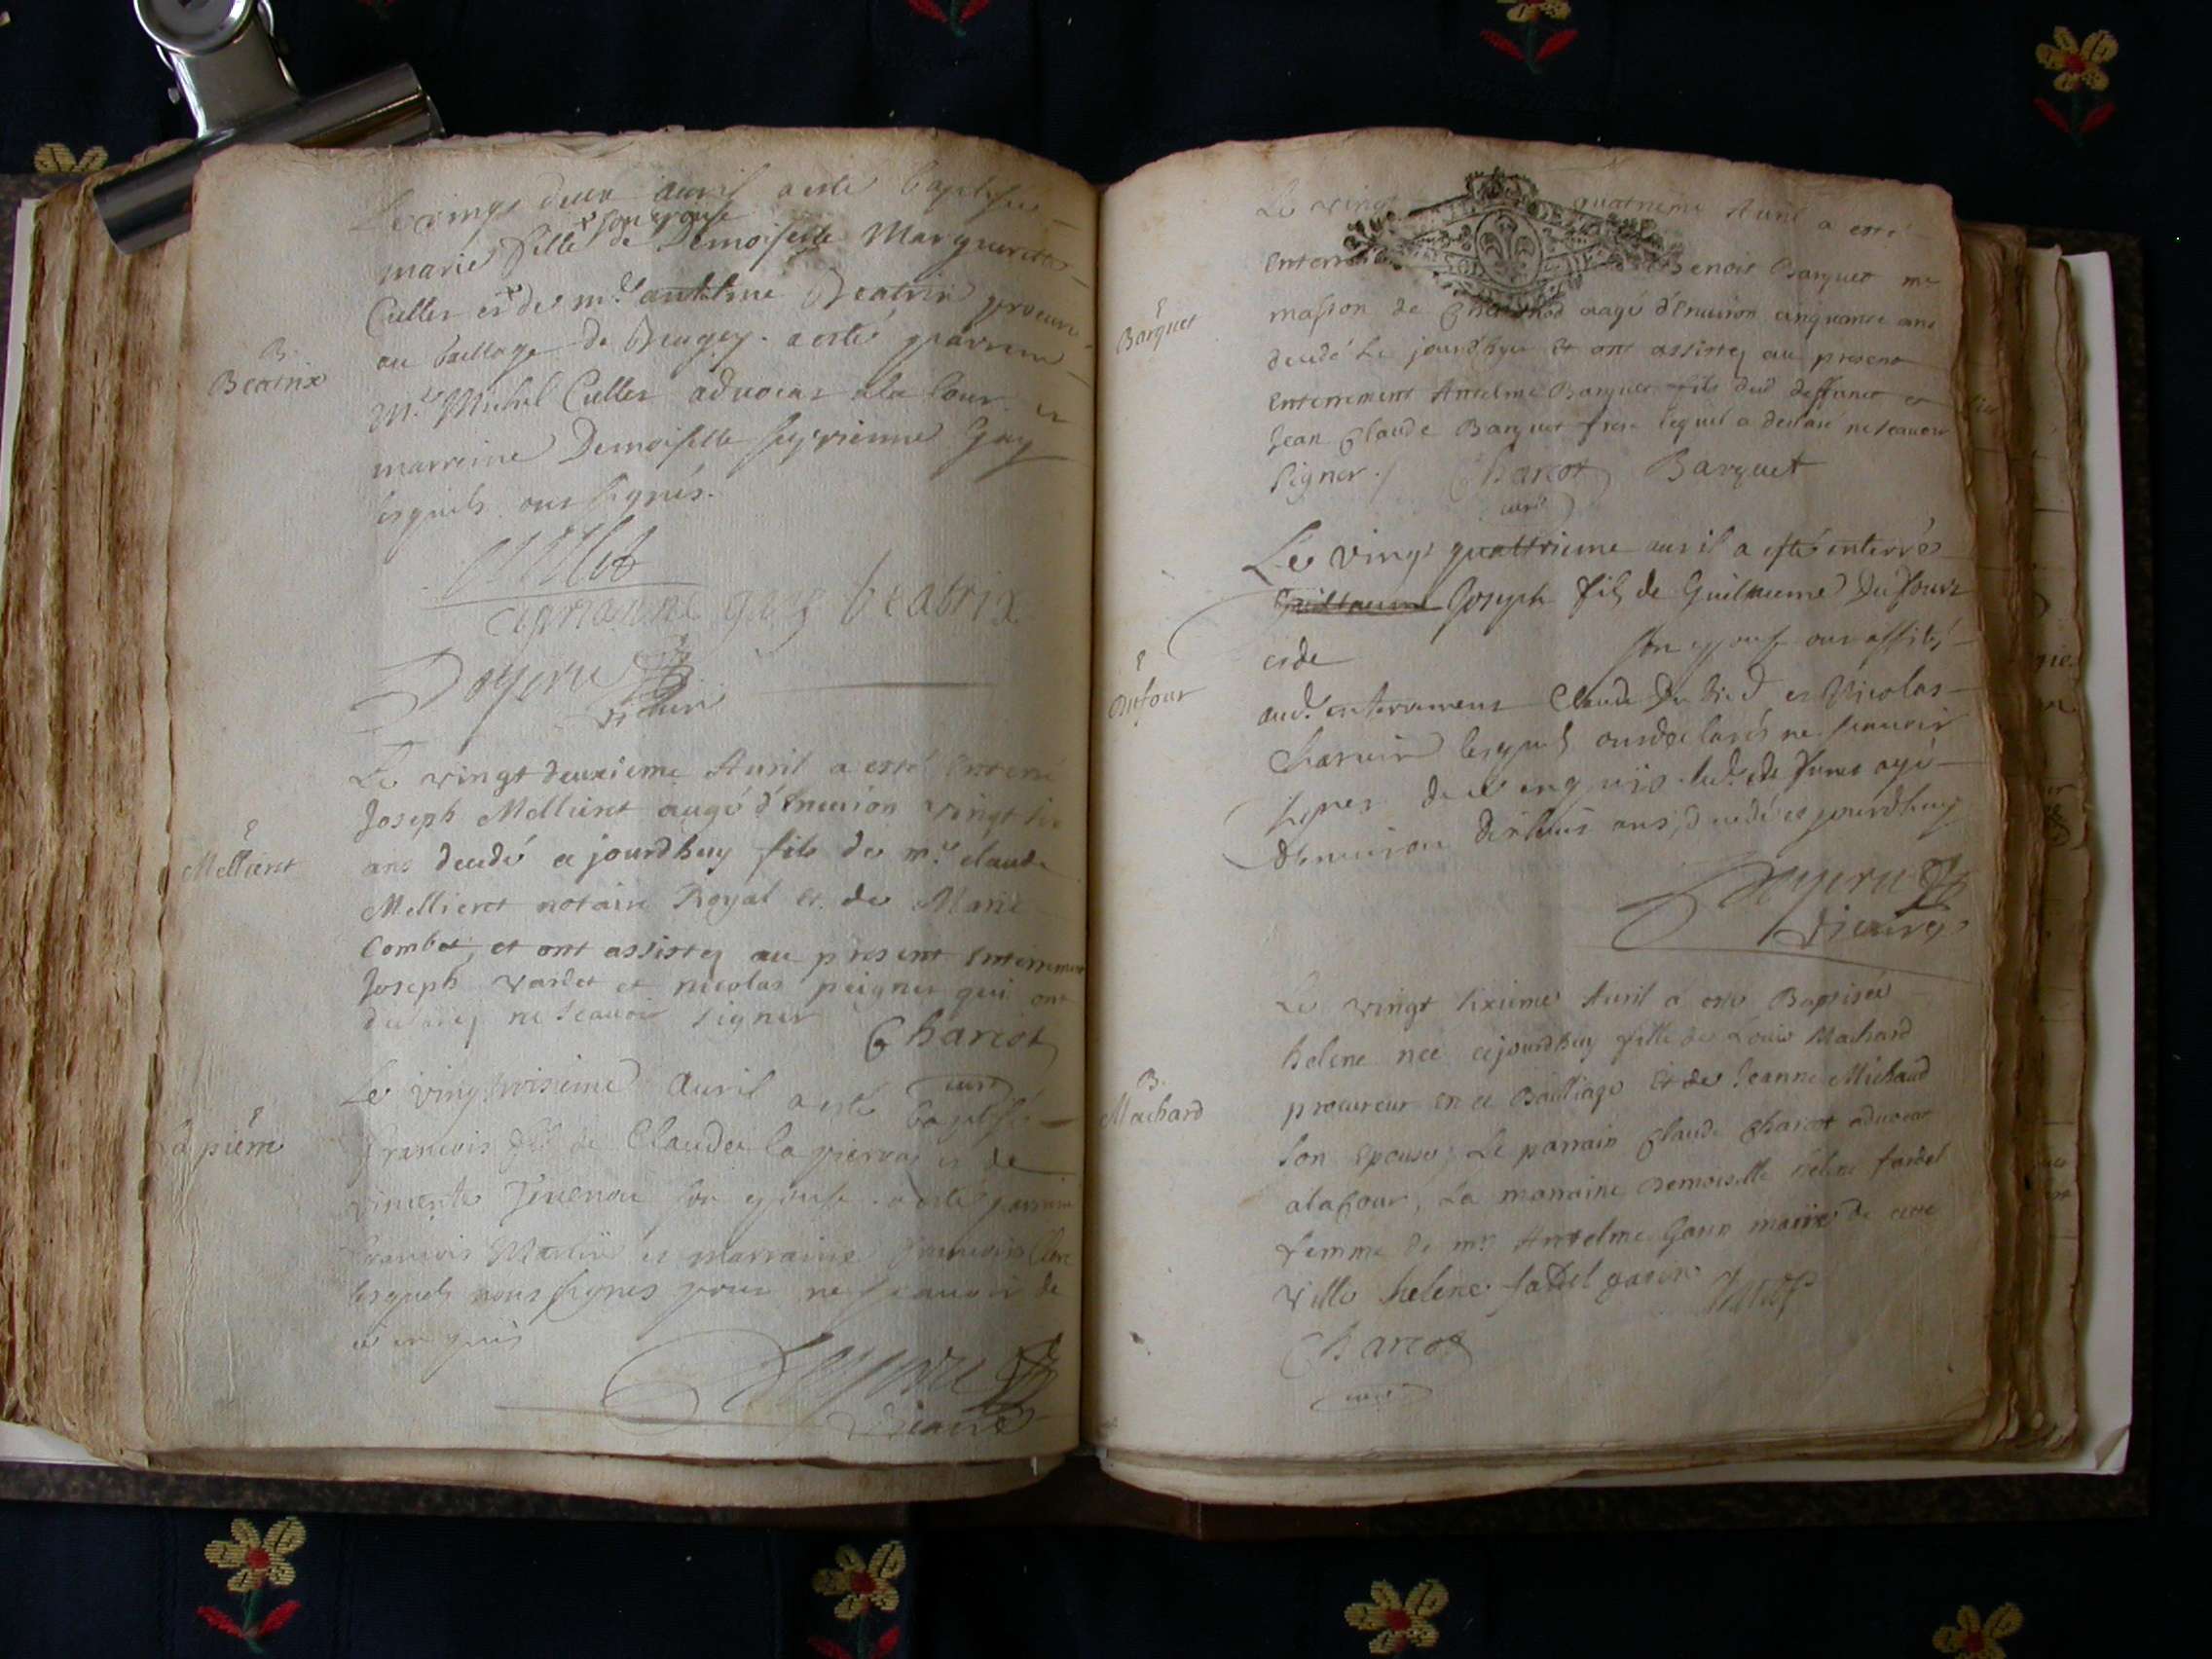 Le vingt deux avril a esté baptisée
marie fille de Demoiselle Marguerite
& son epouse
Cullet et de mr. anthelme Beatrix procureur
B.
Beatrix
au bailliage de Beugey. a esté parrein
Mr. Michel Cullet advocat a la Cour et
marreine Demoiselle Guy
lesquels ont signés.
Cullet
guy beatrix
Doyeru
vicaire
Le vingt deuxieme Auril a esté Enterré
Joseph Mellieret aagé d'Enuiron vingt six
E
Mellieret
ans decedé ce jourdhuy fils de mr. claude
Mellieret notaire Royal et de Marie
Combet, et ont assistez au present Enterrement
Joseph Vardet et nicolas peigner qui ont
declarez ne scauoir signer
Charcot
curé
Le vingt troisieme auril a esté baptisé
E
la pierre
francois fils de Claude la pierre et de
vincente son epouse. a esté parrain
francois Martin et marraine francoise Clerc
lesquels nont signes pour ne scauoir de
ce enquis
Doyeru
vicaire
Le vingt quatrieme Auril a esté
Enterré Benoit Barquet me
E
Barquet
masson de aagé d'Enuiron cinquante ans
decedé Le jourdhuy Et ont assistez au present
Enterrement Antelme Barquet fils dud deffunct et
Jean Claude Barquet frere lequel a declaré ne scauoir
signer. / Charcot Barquet
curé
Le vingt quattrieme auril a esté enterré
Guillaume Joseph fils de Guillaume Du four
et de son epouse ont assistés
E
Dufour
aud. enterrement Claude et Nicolas
lesquels ont declarés ne scauoir
signer de ce enquis. led. defunct agé
d'enuiron dixhuit ans, decedé ce jourdhuy
Doyeru
vicaire
Le vingt sixieme Auril a esté Baptisée
helene née cejourdhuy fille de Louis Machard
B.
Machard
procureur en ce Bailliage Et de Jeanne Michaud
son Epouse; Le parrain Claude Charcot aduocat
a la Cour, La marraine Demoiselle helene fardel
femme de mr. Antelme Garin maire de cette
Ville helene fardel garin
Charcot
curé